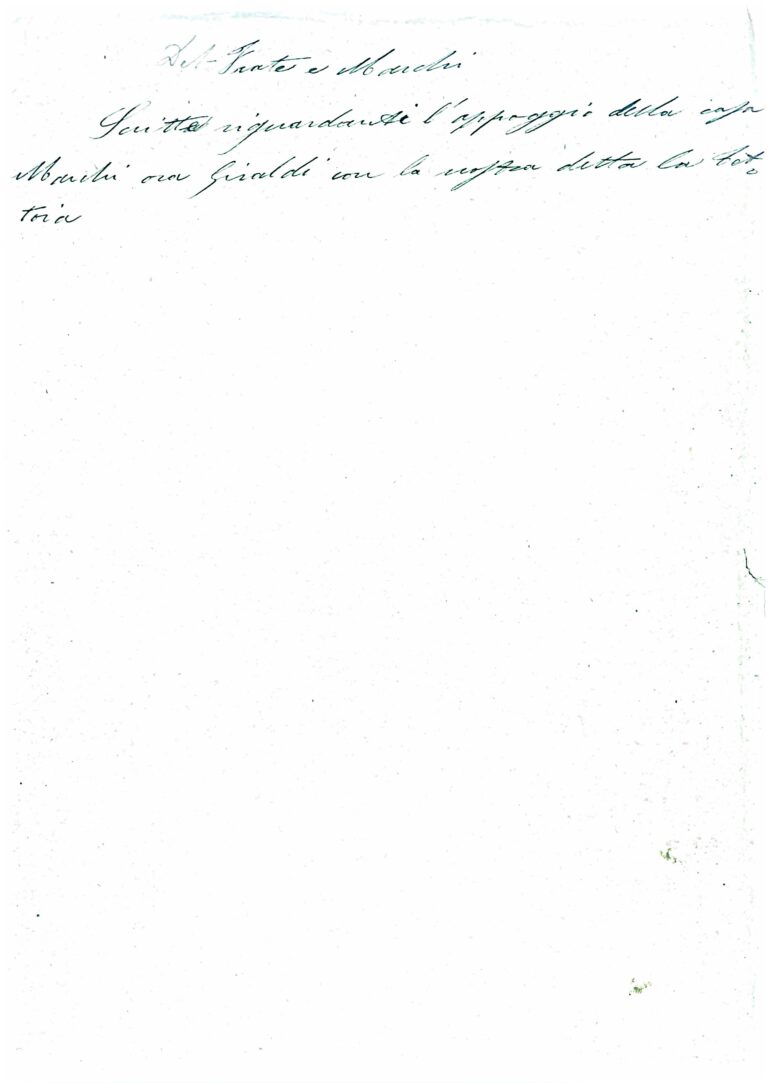 Del Frate e Marchi
Scritte riguardanti l'appoggio della casa
Marchi ora Giraldi con la nostra detta la Tet-
toia